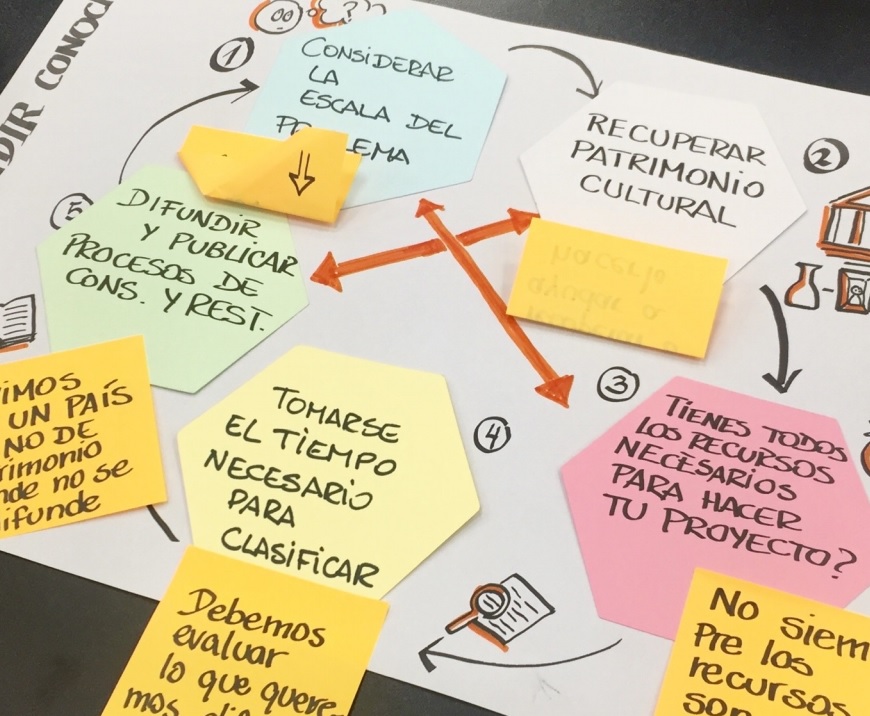 ①
CONSIDERAR
LA
ESCALA DEL
RECUPERAR
PATRIMONIO
CULTURAL
②
hacerlo
ayudar a
recuperar
⑤
DIFUNDIR
Y PUBLICAR
PROCESOS DE
CONS. Y REST.
UN PAÍS
NO DE
no se
③
TIENES TODOS
LOS RECURSOS
NECESARIOS
PARA HACER
TU PROYECTO?
④
TOMARSE
EL TIEMPO
NECESARIO
PARA
CLASIFICAR
Debemos
evaluar
lo que quere
No siem
Pre los
recursos
son